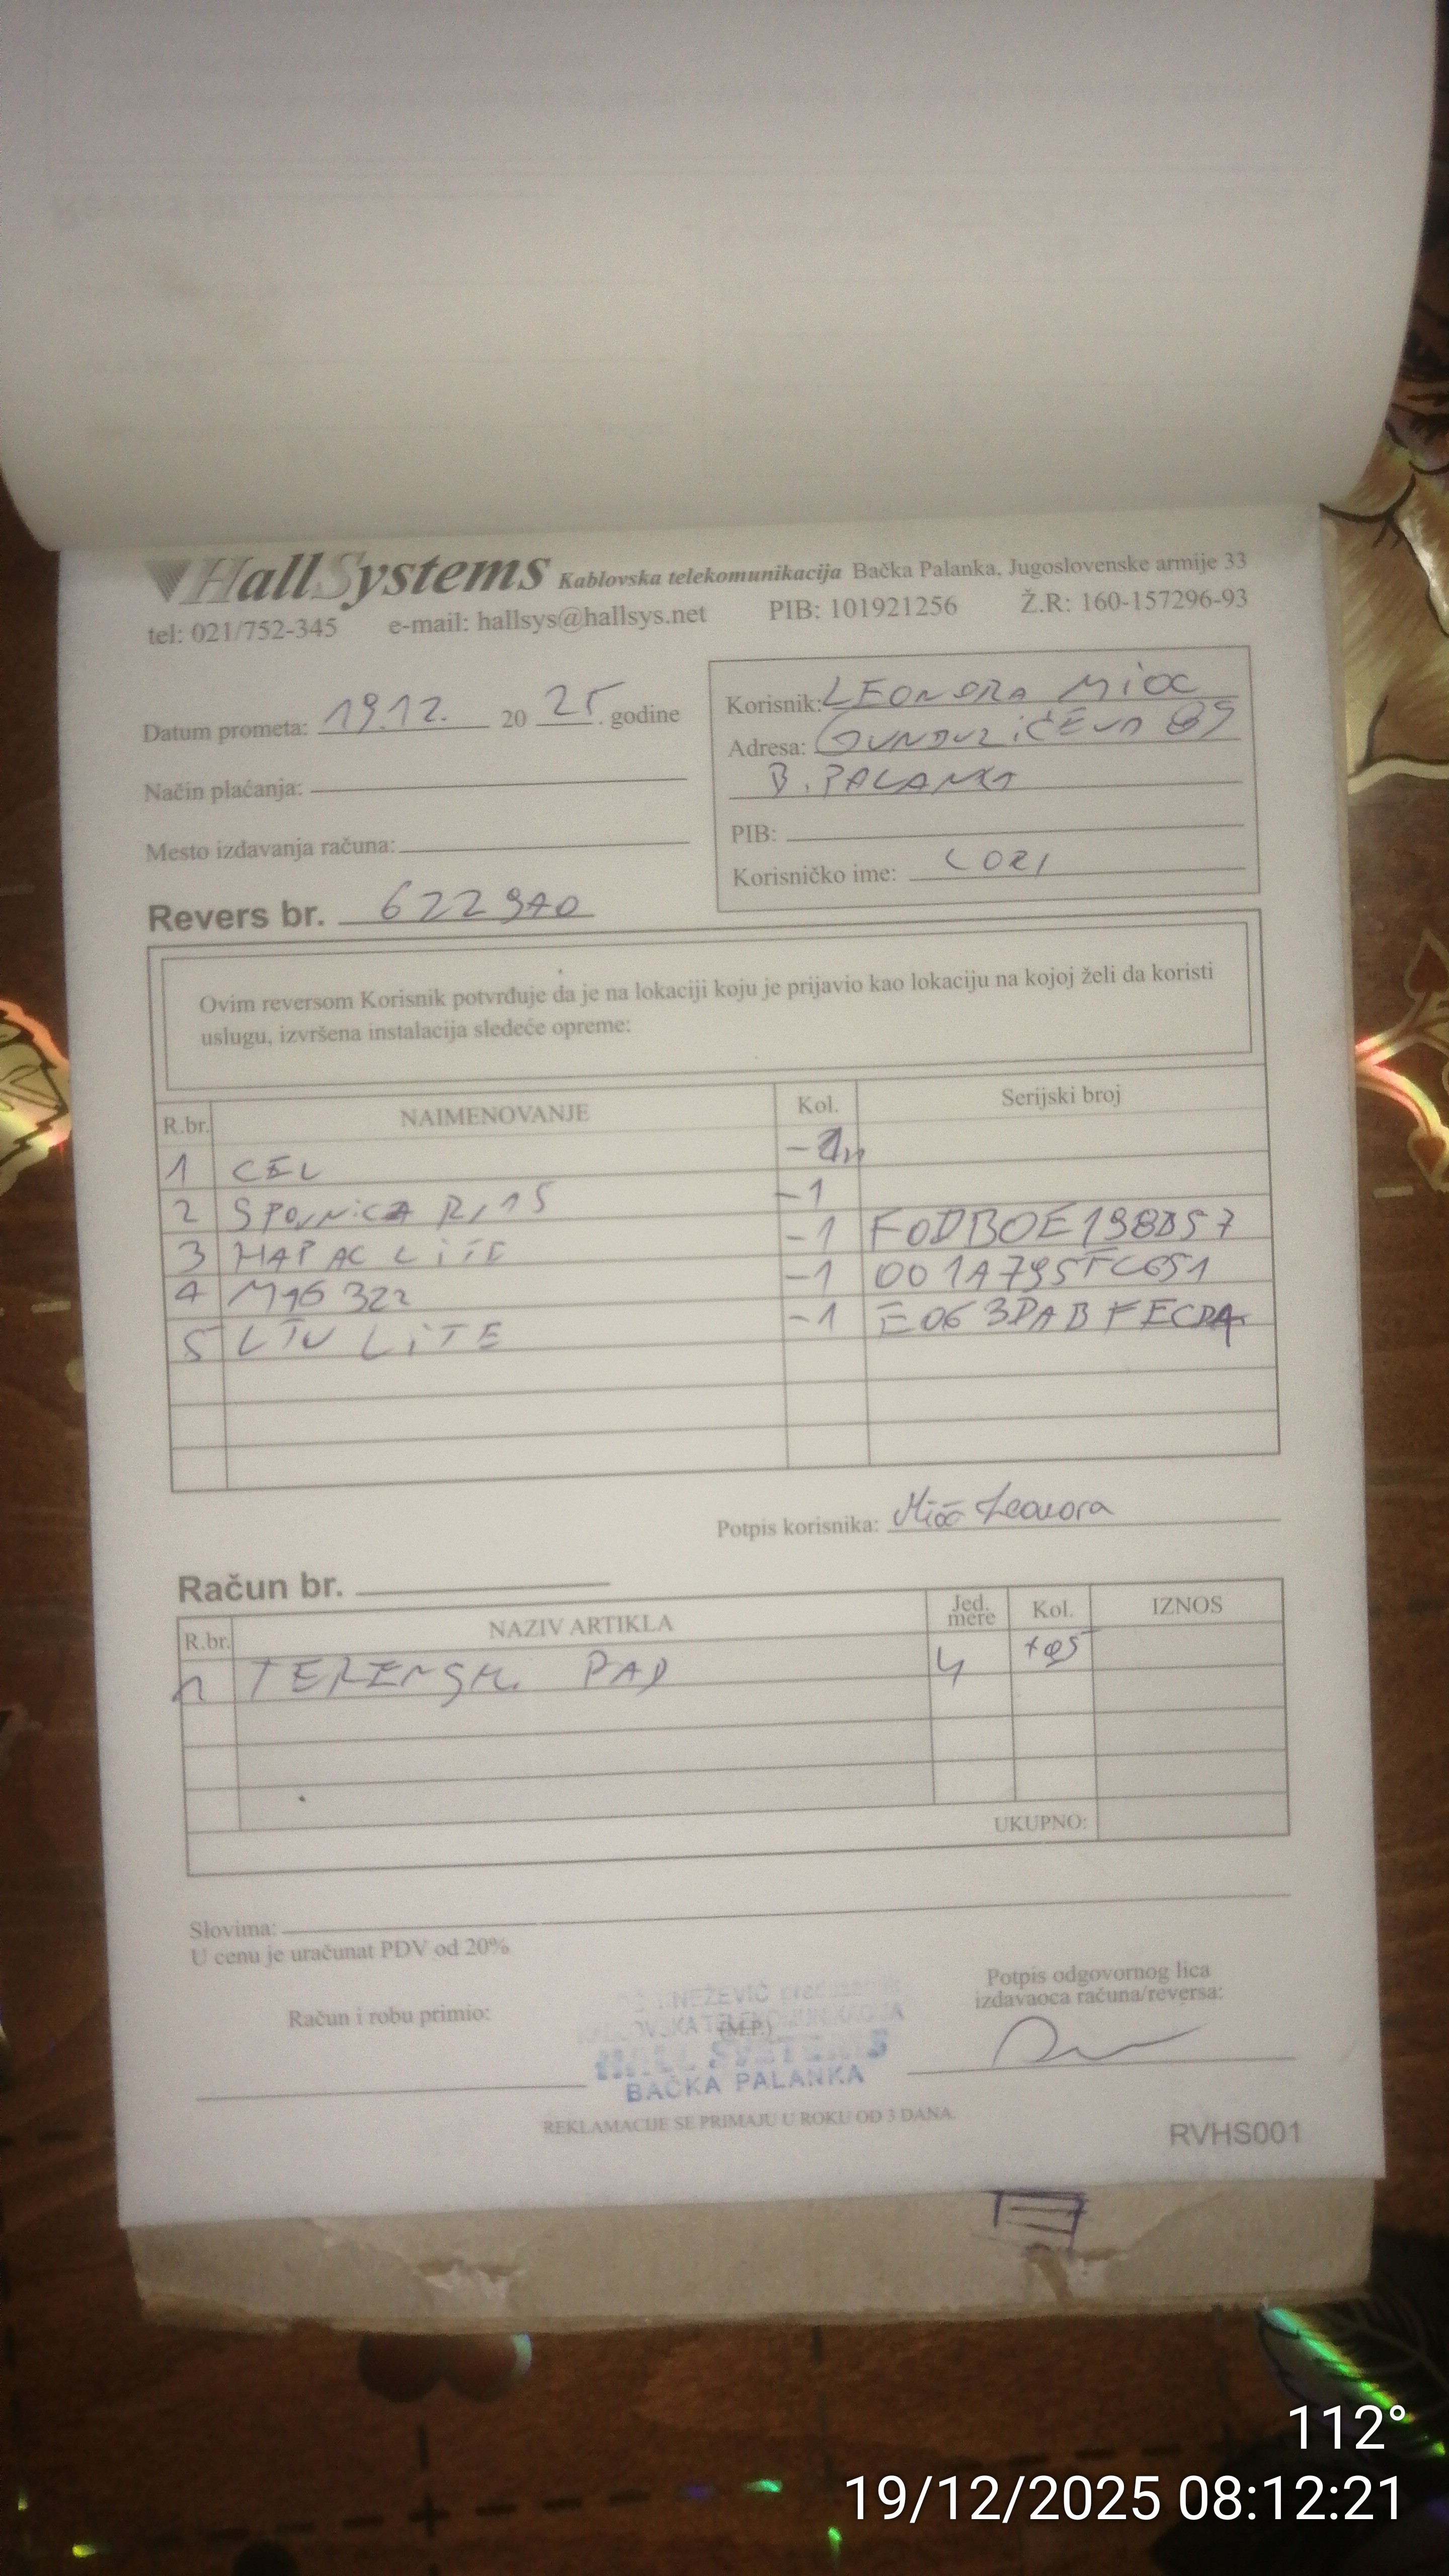 HallSystems Kablovska telekomunikacija Bačka Palanka, Jugoslovenske armije 33
tel: 021/752-345 e-mail: hallsys@hallsys.net PIB: 101921256 Ž.R: 160-157296-93
Datum prometa: 19.12. 20 25. godine
Način plaćanja:
Mesto izdavanja računa:
Revers br. 622940
Korisnik: LEONORA MIOC
Adresa: GUNDULIĆEVA 89
B. PALANKA
PIB:
Korisničko ime: LORI
Ovim reversom Korisnik potvrđuje da je na lokaciji koju je prijavio kao lokaciju na kojoj želi da koristi
uslugu, izvršena instalacija sledeće opreme:
R.br. NAIMENOVANJE Kol. Serijski broj
1 CEL
2 SPOJNICA RJ45 -1
3 HAP AC LITE -1 F0DB0E198D57
4 MAG 322 -1 001A795FC651
5 LTU LITE -1 E063DABFECDA
Potpis korisnika: Mioc Leonora
Račun br.
R.br. NAZIV ARTIKLA Jed. mere Kol. IZNOS
1 TERENSKI RAD +05
UKUPNO:
Slovima:
U cenu je uračunat PDV od 20%
Račun i robu primio:
(M.P.)
Potpis odgovornog lica
izdavaoca računa/reversa:
HALL SYSTEMS
BAČKA PALANKA
REKLAMACIJE SE PRIMAJU U ROKU OD 3 DANA.
RVHS001
112°
19/12/2025 08:12:21